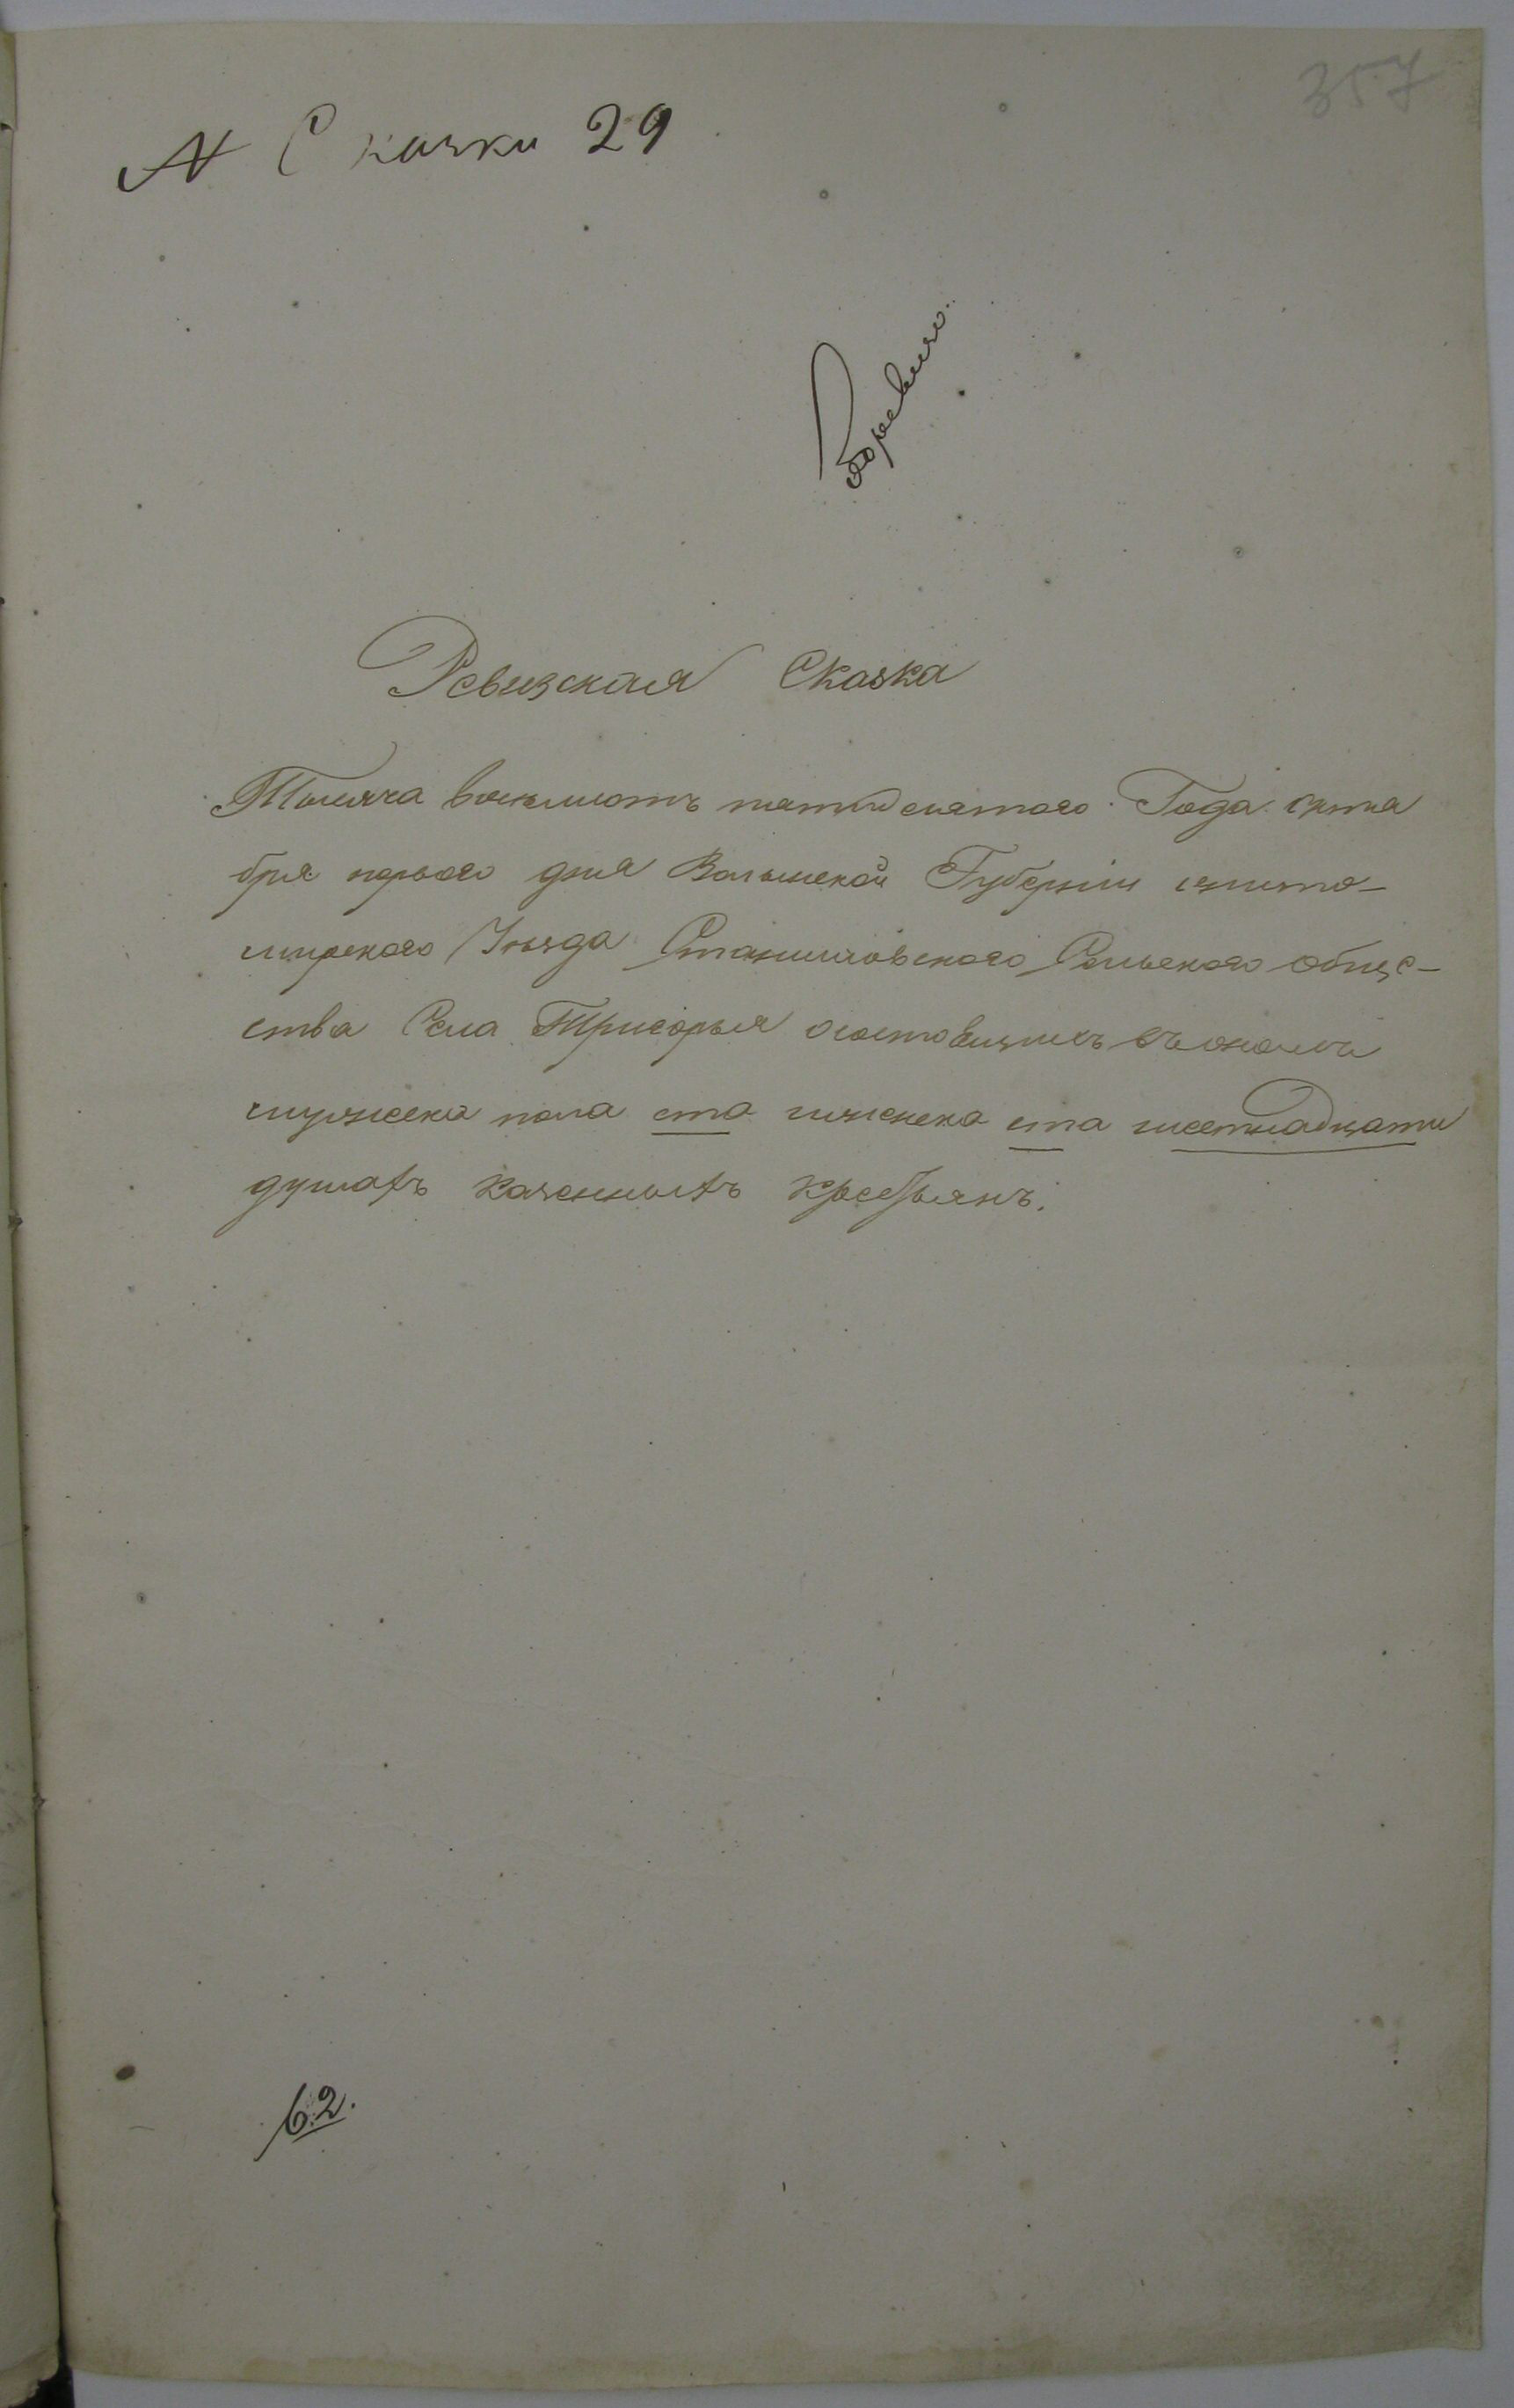 357
N Сказки 29
Ревизская Сказка
Тысяча восьмсотъ пятидесятого Года октя
бря первого дня Волынской Губернии жито-
мирского Уезда Станишовского Сельского обще-
ства Села Тригорья о состоящихъ въ ономъ
мужска пола ста женска ста шестнадцати
душахъ казенныхъ крестьянъ.
62.